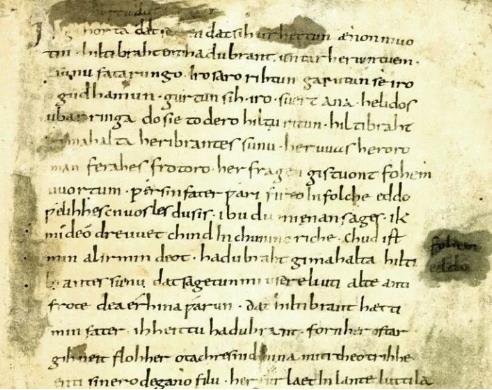 gihorta dat seggen dat sih urhettun ænon muo
tin · hiltibraht enti hadubrant · untar heriun tuem ·
sunu fatarungo · iro saro rihtun garutun se iro
gudhamun · gurtun sih · iro · suert ana · helidos
ubar ringa do sie to dero hiltu ritun · hiltibraht
gimahalta heribrantes sunu · her uuas heroro
man ferahes frotoro · her fragen gistuont fohem
uuortum · ƿer sin fater ƿari fireo In folche eddo
ƿelihhes cnuosles du sis · ibu du mi enan sages · ik
mi deo dre uuet chind In chuninc riche · Chud ist
min al irmin deot · hadubraht gimahalta hilti
brantes sunu dat sagetun mi usere liuti alte anti
frote dea érhina ƿarun · dat hiltibrant hætti
min fater · ih heittu hadubrant · forn her ostar
gihueit floh her otachres nid hina miti theotrihhe ·
enti sinero degano filu · her furlaet In lante luttila